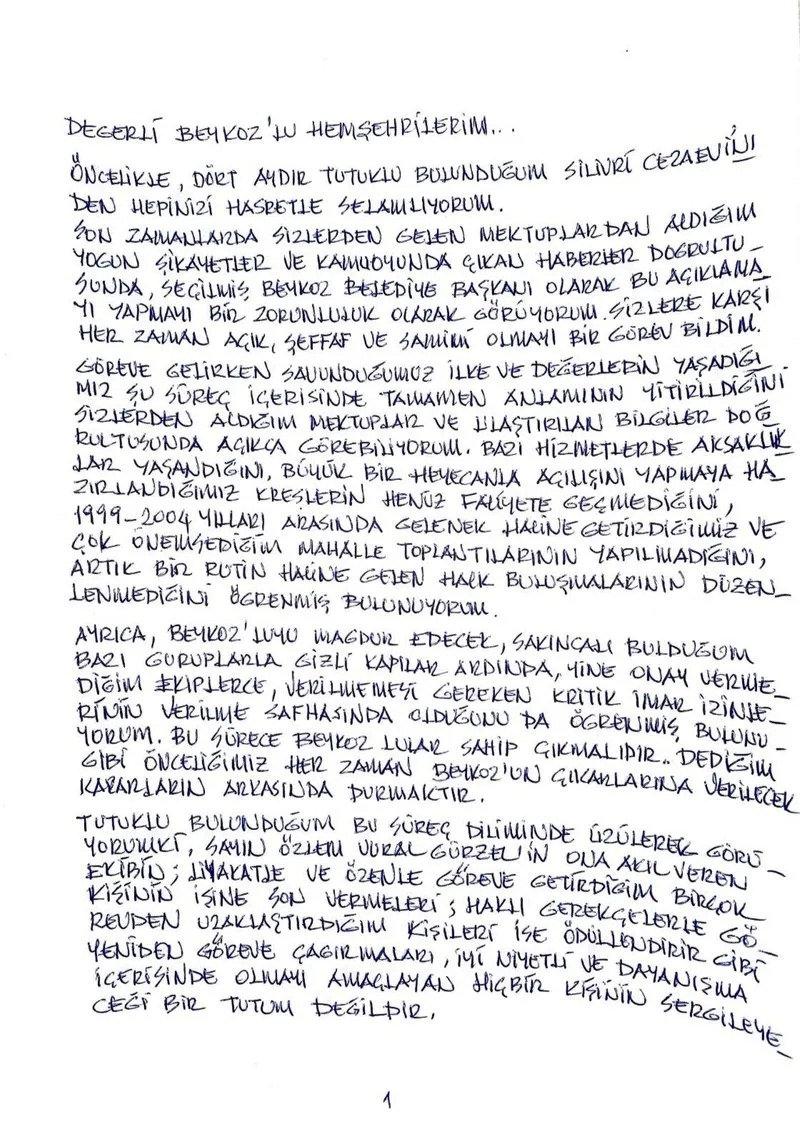 DEĞERLİ BEYKOZ'LU HEMŞEHRİLERİM...
ÖNCELİKLE, DÖRT AYDIR TUTUKLU BULUNDUĞUM SİLİVRİ CEZAEVİ'Nİ
DEN HEPİNİZİ HASRETLE SELAMLIYORUM.
SON ZAMANLARDA SİZLERDEN GELEN MEKTUPLARDAN ALDIĞIM
YOĞUN ŞİKAYETLER VE KAMUOYUNDA ÇIKAN HABERLER DOĞRULTU_
SUNDA, SEÇİLMİŞ BEYKOZ BELEDİYE BAŞKANI OLARAK BU AÇIKLAMA_
YI YAPMAYI BİR ZORUNLULUK OLARAK GÖRÜYORUM. SİZLERE KARŞI
HER ZAMAN AÇIK, ŞEFFAF VE SAMİMİ OLMAYI BİR GÖREV BİLDİM.
GÖREVE GELİRKEN SAVUNDUĞUMUZ İLKE VE DEĞERLERİN YAŞADIĞI_
MIZ ŞU SÜREÇ İÇERİSİNDE TAMAMEN ANLAMININ YİTİRİLDİĞİNİ
SİZLERDEN ALDIĞIM MEKTUPLAR VE ULAŞTIRILAN BİLGİLER DOĞ_
RULTUSUNDA AÇIKÇA GÖREBİLİYORUM. BAZI HİZMETLERDE AKSAKLIK_
LAR YAŞANDIĞINI, BÜYÜK BİR HEYECANLA AÇILIŞINI YAPMAYA HA_
ZIRLANDIĞIMIZ KREŞLERİN HENÜZ FALİYETE GEÇMEDİĞİNİ,
1999-2004 YILLARI ARASINDA GELENEK HALİNE GETİRDİĞİMİZ VE
ÇOK ÖNEMSEDİĞİM MAHALLE TOPLANTILARININ YAPILMADIĞINI,
ARTIK BİR RUTİN HALİNE GELEN HALK BULUŞMALARININ DÜZEN_
LENMEDİĞİNİ ÖĞRENMİŞ BULUNUYORUM.
AYRICA, BEYKOZ'LUYU MAĞDUR EDECEK, SAKINCALI BULDUĞUM
BAZI GURUPLARLA GİZLİ KAPILAR ARDINDA, YİNE ONAY VERME_
DİĞİM EKİPLERCE, VERİLMEMESİ GEREKEN KRİTİK İMAR İZİNLE_
RİNİN VERİLME SAFHASINDA OLDUĞUNU DA ÖĞRENMİŞ BULUNU_
YORUM. BU SÜRECE BEYKOZ LULAR SAHİP ÇIKMALIDIR.. DEDİĞİM
GİBİ ÖNCELİĞİMİZ HER ZAMAN BEYKOZ'UN ÇIKARLARINA VERİLECEK
KARARLARIN ARKASINDA DURMAKTIR.
TUTUKLU BULUNDUĞUM BU SÜREÇ DİLİMİNDE ÜZÜLEREK GÖRÜ_
YORUMKİ, SAYIN ÖZLEM VURAL GÜRZEL'İN ONA AKIL VEREN
EKİBİN; LİYAKATLE VE ÖZENLE GÖREVE GETİRDİĞİM BİRÇOK
KİŞİNİN İŞİNE SON VERMELERİ; HAKLI GEREKÇELERLE GÖ_
REVDEN UZAKLAŞTIRDIĞIM KİŞİLERİ İSE ÖDÜLLENDİRİR GİBİ
YENİDEN GÖREVE ÇAĞIRMALARI, İYİ NİYETLİ VE DAYANIŞMA
İÇERİSİNDE OLMAYI AMAÇLAYAN HİÇBİR KİŞİNİN SERGİLEYE_
CEĞİ BİR TUTUM DEĞİLDİR.
1